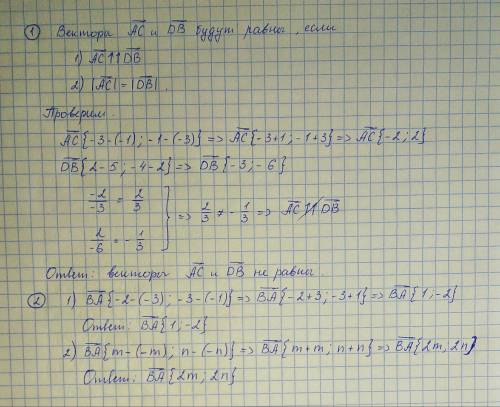 ① Векторы AC и DB будут равны, если
1) AC↑↑DB
2) |AC| = |DB|.
Проверим.
AC{-3-(-1); -1-(-3)} => AC{-3+1; -1+3} => AC{-2; 2}
DB{2-5; -4-2} => DB{-3; -6}
-2/-3 = 2/3
2/-6 = -1/3 } => 2/3 ≠ -1/3 => AC ↑↑̸ DB
Ответ: векторы AC и DB не равны.
② 1) BA{-2-(-3); -3-(-1)} => BA{-2+3; -3+1} => BA{1; -2}
Ответ: BA{1; -2}
2) BA{m-(-m); n-(-n)} => BA{m+m; n+n} => BA{2m; 2n}
Ответ: BA{2m; 2n}